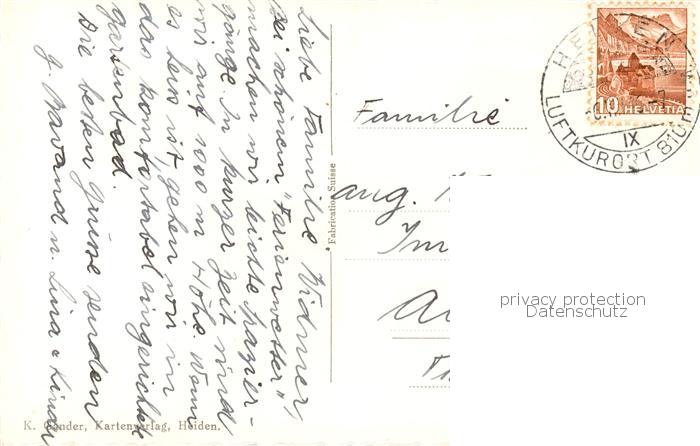 Liebe Familie Widmer,
Bei schönem "Ferienwetter"
machen wir leichte Spazier-
gänge. In kurzer Zeit sind
wir auf 1000 m Höhe. Wenn
es heiss ist, gehen wir in
das komfortabel eingerichtete
gartenbad.
Die besten Grüsse senden
J. u. Lina & Kinder
Fabrication Suisse
K. Gander, Kartenverlag, Heiden.
Familie
aug.
Im
10 HELVETIA
HEIDEN
IX
LUFTKURORT 810 m
privacy protection
Datenschutz